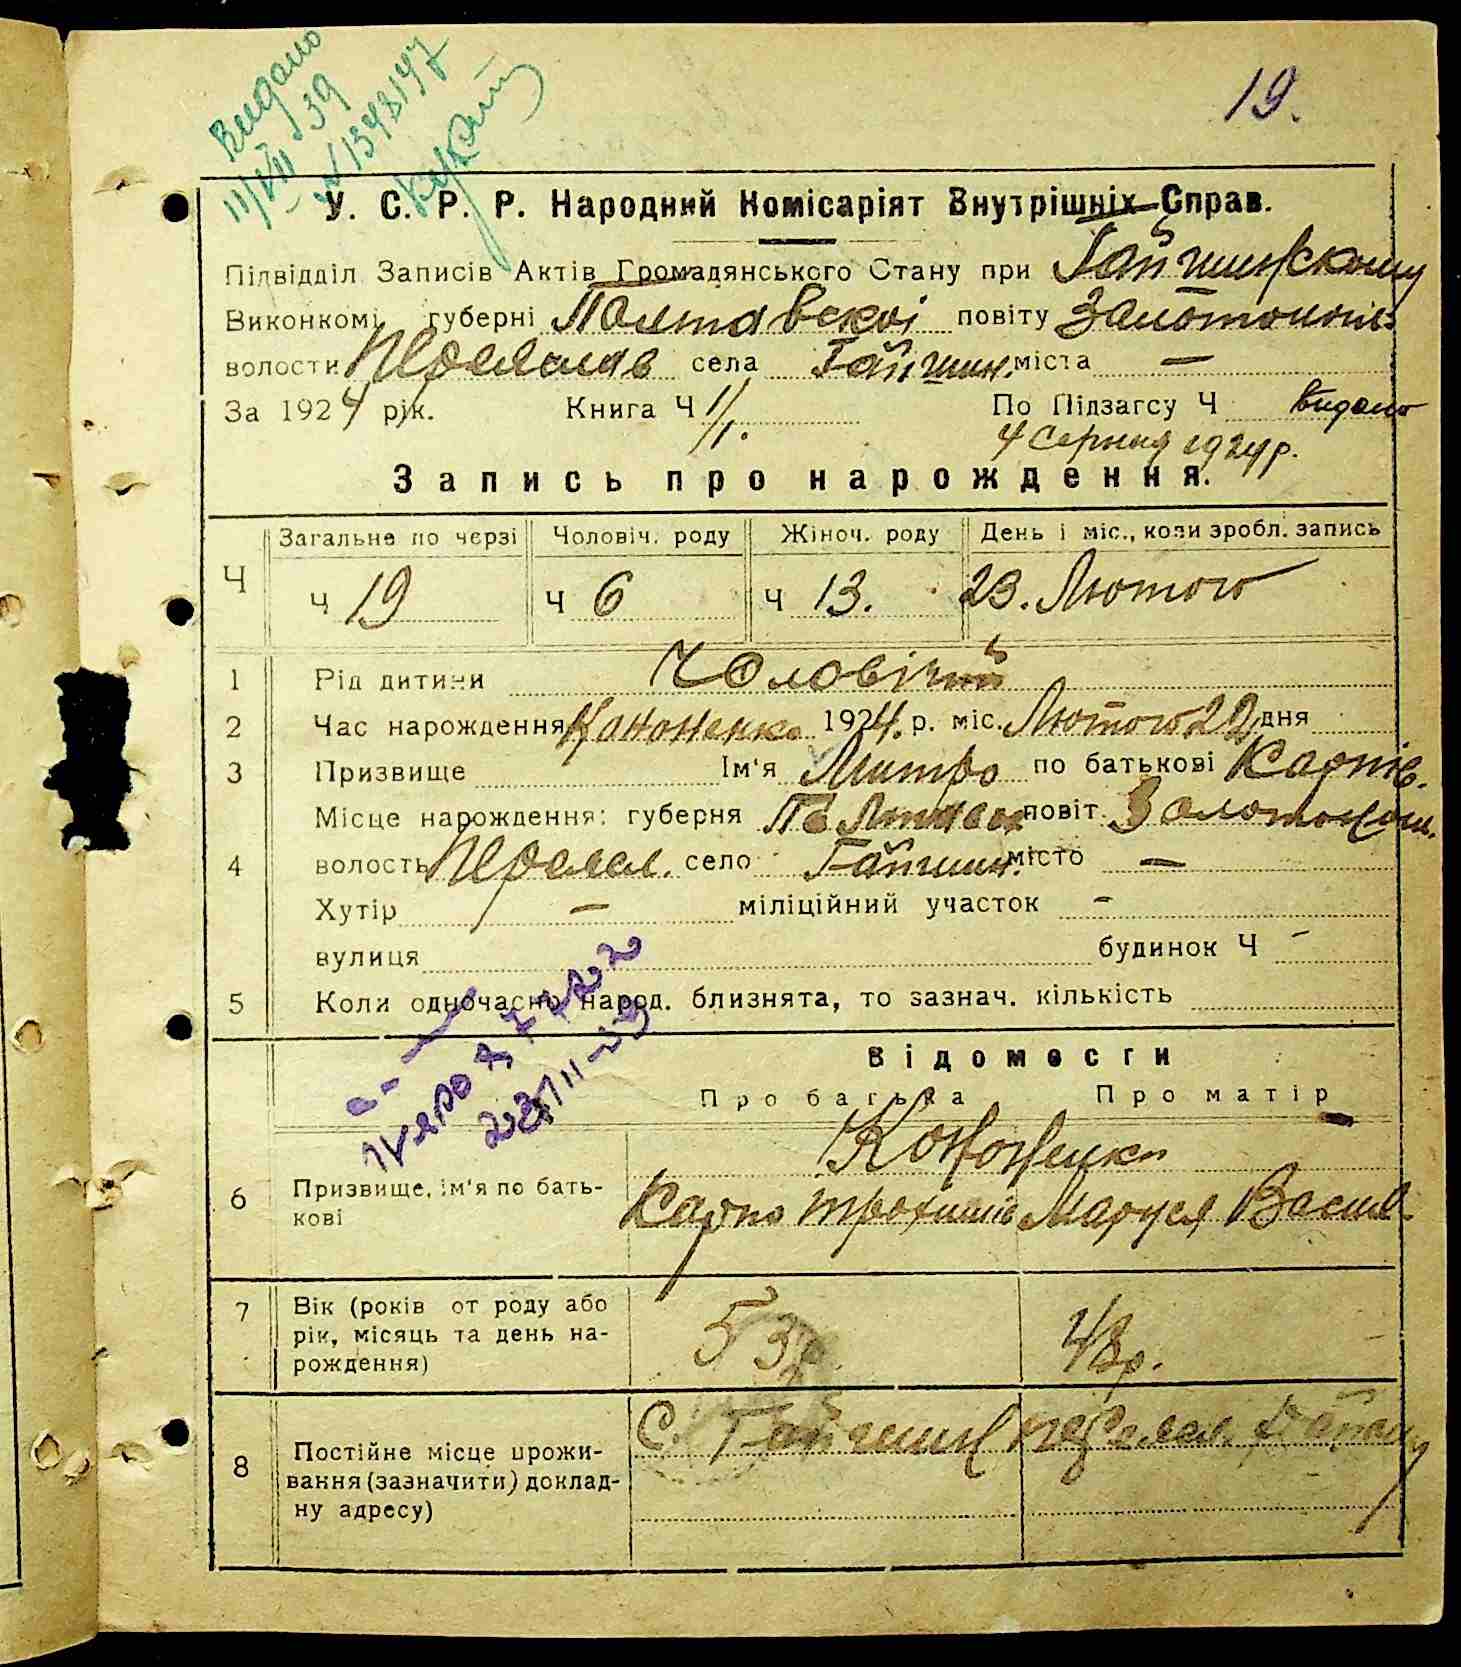 Видано
19.
№ 1348147
У. С. Р. Р. Народний Комісаріят Внутрішніх Справ.
Підвідділ Записів Актів Громадянського Стану при Гайшинскому
Виконкомі губерні Полтавскоі повіту Золотоніс
волости Переяслав села Гайшин. міста —
За 1924 рік. Книга Ч 1/1. По Підзагсу Ч видано
4 Серпня 1924 р.
Запись про нарождення.
Ч Загальне по черзі Чоловіч. роду Жіноч. роду День і міс., коли зробл. запись
Ч 19 Ч 6 Ч 13. 23. Лютого
1 Рід дитини Чоловічий
2 Час нарождення Кононенко 1924. р. міс. Лютого 22 дня
3 Призвище Ім'я Митро по батькові Карпів.
Місце нарождення: губерня Полтавск повіт Золотонош.
4 волость Переясл. село Гайшин. місто —
Хутір — міліційний участок -
вулиця будинок Ч -
5 Коли одночасно народ. близнята, то зазнач. кількість
Відомости
Про батька Про матір
Кононенко
6 Призвище, ім'я по бать-
кові Карпо Трохимів Маруся Васил.
7 Вік (років от роду або
рік, місяць та день на-
рождення) 53 р. 43 р.
8 Постійне місце прожи-
вання (зазначити) доклад-
ну адресу) С. Гайшин Переясл.